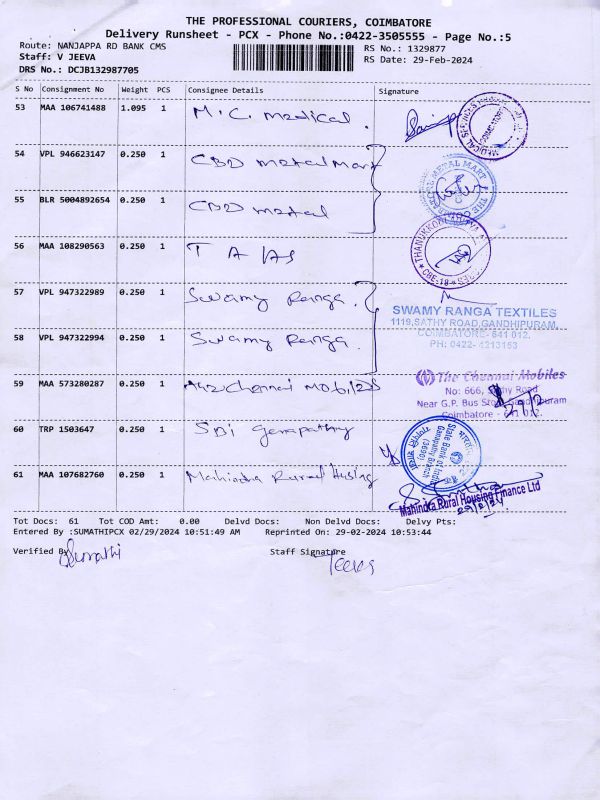 THE PROFESSIONAL COURIERS, COIMBATORE
Delivery Runsheet - PCX - Phone No.:0422-3505555 - Page No.:5
Route: NANJAPPA RD BANK CMS RS No.: 1329877
Staff: V JEEVA RS Date: 29-Feb-2024
DRS No.: DCJB132987705
S No Consignment No Weight PCS Consignee Details Signature
53 MAA 106741488 1.095 1 M.C. medical.
54 VPL 946623147 0.250 1 CBD metal Mart
METAL MART
55 BLR 5004892654 0.250 1 CBD metal
56 MAA 108290563 0.250 1 T A
CBE-18
57 VPL 947322989 0.250 1 Swamy Ranga.
SWAMY RANGA TEXTILES
1119,SATHY ROAD,GANDHIPURAM,
COIMBATORE- 641 012.
PH: 0422- 4213163
58 VPL 947322994 0.250 1 Swamy Ranga.
59 MAA 573280287 0.250 1 Chennai Mobiles
The Chennai Mobiles
No: 666, Road
Near G.P. Bus
Coimbatore - 641 012.
60 TRP 1503647 0.250 1 SBI Ganapathy
State Bank of India
Ganapathy Branch
61 MAA 107682760 0.250 1 Mahindra Rural Husing
Mahindra Rural Housing Finance Ltd
29/2/24
Tot Docs: 61 Tot COD Amt: 0.00 Delvd Docs: Non Delvd Docs: Delvy Pts:
Entered By :SUMATHIPCX 02/29/2024 10:51:49 AM Reprinted On: 29-02-2024 10:53:44
Verified By Sumathi Staff Signature